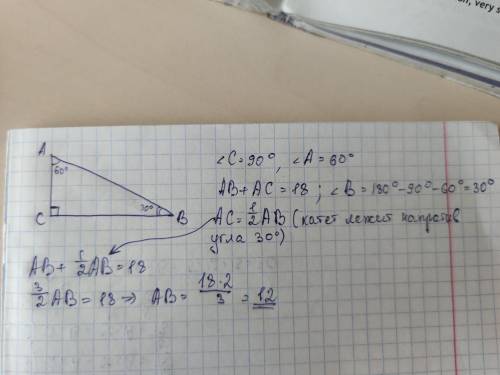 n, very s
A
60°
C
30°
B
∠C=90°, ∠A=60°
AB+AC=18; ∠B=180°-90°-60°=30°
AC=1/2AB (катет лежит напротив
угла 30°)
AB+1/2AB=18
3/2AB=18→ AB=18·2/3=12